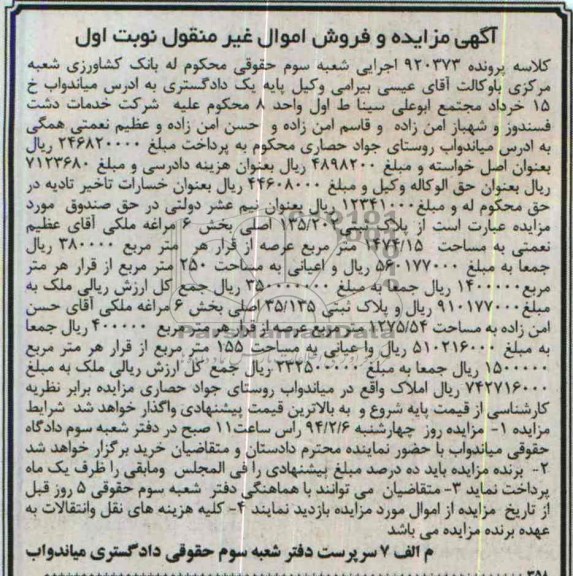 آگهی مزایده و فروش اموال غیر منقول نوبت اول
کلاسه پرونده ۹۲۰۳۷۳ اجرایی شعبه سوم حقوقی محکوم له بانک کشاورزی شعبه
مرکزی باوکالت آقای عیسی بیرامی وکیل پایه یک دادگستری به ادرس میاندواب خ
۱۵ خرداد مجتمع ابوعلی سینا ط اول واحد ۸ محکوم علیه شرکت خدمات دشت
فسندوز و شهباز امن زاده و قاسم امن زاده و حسن امن زاده و عظیم نعمتی همگی
به ادرس میاندواب روستای جواد حصاری محکوم به پرداخت مبلغ ۲۴۶۸۲۰۰۰۰ ریال
بعنوان اصل خواسته و مبلغ ۴۸۹۸۲۰۰ ریال بعنوان هزینه دادرسی و مبلغ ۷۱۲۳۶۸۰
ریال بعنوان حق الوکاله وکیل و مبلغ ۴۴۶۰۸۰۰۰ ریال بعنوان خسارات تاخیر تادیه در
حق محکوم له و مبلغ ۱۲۳۴۱۰۰۰ ریال بعنوان نیم عشر دولتی در حق صندوق مورد
مزایده عبارت است از پلاک ثبتی ۱۳۵/۲۰۲ اصلی بخش ۶ مراغه ملکی آقای عظیم
نعمتی به مساحت ۱۴۷۴/۱۵ متر مربع عرصه از قرار هر متر مربع ۳۸۰۰۰۰ ریال
جمعا به مبلغ ۵۶۰۱۷۷۰۰۰ ریال و اعیانی به مساحت ۲۵۰ متر مربع از قرار هر متر
مربع ۱۴۰۰۰۰۰ ریال جمعا به مبلغ ۳۵۰۰۰۰۰۰۰ ریال جمع کل ارزش ریالی ملک به
مبلغ ۹۱۰۱۷۷۰۰۰ ریال و پلاک ثبتی ۳۵/۱۳۵ اصلی بخش ۶ مراغه ملکی آقای حسن
امن زاده به مساحت ۱۲۷۵/۵۴ متر مربع عرصه از قرار هر متر مربع ۴۰۰۰۰۰ ریال جمعا
به مبلغ ۵۱۰۲۱۶۰۰۰ ریال واعیانی به مساحت ۱۵۵ متر مربع از قرار هر متر مربع
۱۵۰۰۰۰۰ ریال جمعا به مبلغ ۲۳۲۵۰۰۰۰۰ ریال جمع کل ارزش ریالی ملک به مبلغ
۷۴۲۷۱۶۰۰۰ ریال املاک واقع در میاندواب روستای جواد حصاری مزایده برابر نظریه
کارشناسی از قیمت پایه شروع و به بالاترین قیمت پیشنهادی واگذار خواهد شد شرایط
مزایده ۱- مزایده روز چهارشنبه ۹۴/۲/۶ راس ساعت ۱۱ صبح در دفتر شعبه سوم دادگاه
حقوقی میاندواب با حضور نماینده محترم دادستان و متقاضیان خرید برگزار خواهد شد
۲- برنده مزایده باید ده درصد مبلغ پیشنهادی را فی المجلس ومابقی را ظرف یک ماه
پرداخت نماید ۳- متقاضیان می توانند با هماهنگی دفتر شعبه سوم حقوقی ۵ روز قبل
از تاریخ مزایده از اموال مورد مزایده بازدید نمایند ۴- کلیه هزینه های نقل وانتقالات به
عهده برنده مزایده می باشد
م الف ۷ سرپرست دفتر شعبه سوم حقوقی دادگستری میاندواب